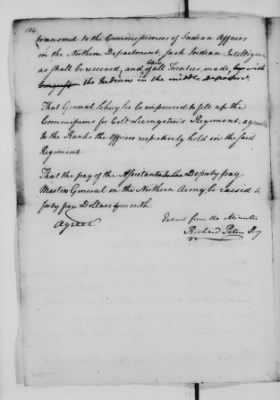 transmit to the Commissioners of Indian Affairs
in the Northern Department, such Indian Intelligence
as shall be received, and of all Treaties made
the Indians in the middle
That General Schuyler be impowered to fill up the
Commissions for Coll Livingston's Regiment, agreeable
to the Ranks the Officers respectively held in the said
Regiment
That the pay of the Assistant to the Deputy pay
Master General in the Northern Army be raised to
forty six Dollars ⅌ month.
Agreed
Extract from the Minutes
Richard Peters Secy